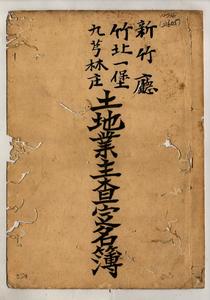 新竹廳
竹北一堡
九芎林庄
土地業主查定名簿